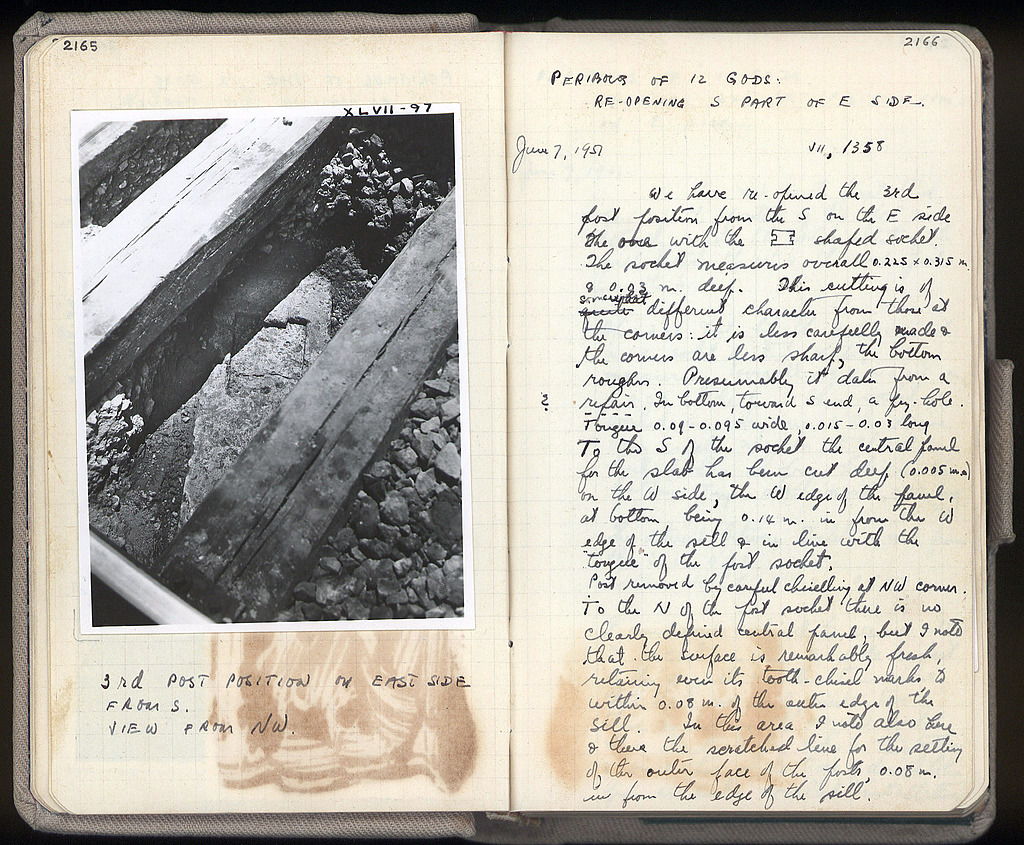 2165
XLVII-97
3rd POST POSITION ON EAST SIDE
FROM S.
VIEW FROM NW.
2166
PERIBOLOS OF 12 GODS:
RE-OPENING S PART OF E SIDE.
June 7, 1951 VII, 1358
We have re-opened the 3rd
post position from the S on the E side
the one with the shaped socket.
The socket measures overall 0.225 x 0.315 m.
& 0.03 m. deep. This cutting is of
somewhat
quite different character from those at
the corners: it is less carefully made &
the corners are less sharp, the bottom
rougher. Presumably it dates from a
? repair. In bottom, toward S end, a pry-hole.
Tongue 0.09-0.095 wide, 0.015-0.03 long
To the S of the socket the central panel
for the slab has been cut deep (0.005 m.)
on the W side, the W edge of the panel,
at bottom being 0.14 m. in from the W
edge of the sill & in line with the
"tongue" of the post socket.
Post removed by careful chiselling at NW corner.
To the N of the post socket there is no
clearly defined central panel, but I note
that the surface is remarkably fresh,
retaining even its tooth-chisel marks to
within 0.08 m. of the outer edge of the
sill. In this area I note also here
& there the scratched line for the setting
of the outer face of the posts, 0.08 m.
in from the edge of the sill.